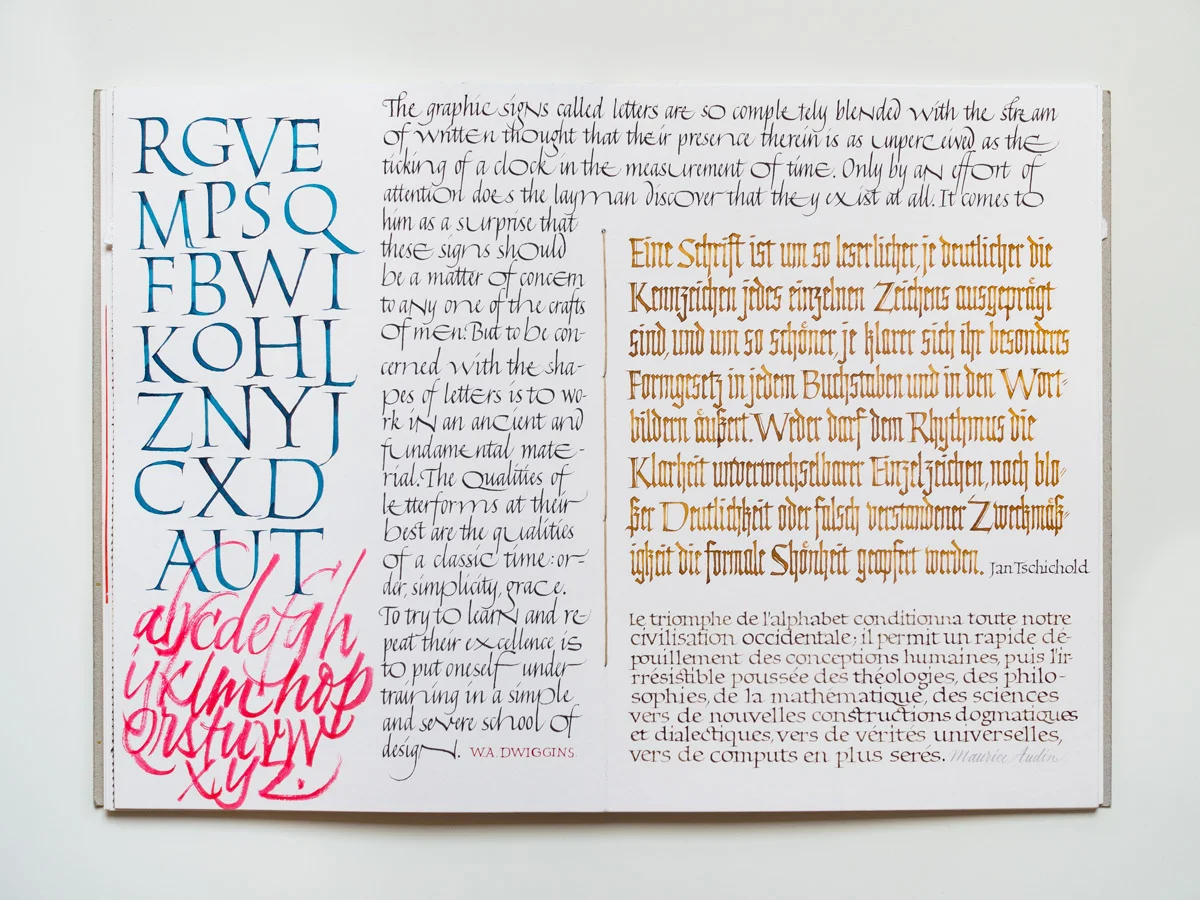 RGVE
MPSQ
FBWI
KOHL
ZNYJ
CXD
AUT
abcdefgh
ijklmnop
qrstuvw
xyz.
The graphic signs called letters are so completely blended with the stream
of written thought that their presence therein is as unperceived as the
ticking of a clock in the measurement of time. Only by an effort of
attention does the layman discover that they exist at all. It comes to
him as a surprise that
these signs should
be a matter of concern
to any one of the crafts
of men. But to be con-
cerned with the sha-
pes of letters is to wo-
rk in an ancient and
fundamental mate-
rial. The Qualities of
letterforms at their
best are the qualities
of a classic time: or-
der, simplicity, grace.
To try to learn and re-
peat their excellence is
to put oneself under
training in a simple
and severe school of
design. W.A. DWIGGINS.
Eine Schrift ist um so leserlicher, je deutlicher die
Kennzeichen jedes einzelnen Zeichens ausgeprägt
sind, und um so schöner, je klarer sich ihr besonders
Formgesetz in jedem Buchstaben und in den Wort-
bildern äußert. Weder darf dem Rhythmus die
Klarheit unverwechselbarer Einzelzeichen, noch blo-
ßer Deutlichkeit oder falsch verstandener Zweckmäß-
igkeit die formale Schönheit geopfert werden. Jan Tschichold
Le triomphe de l'alphabet conditionna toute notre
civilisation occidentale; il permit un rapide dé-
pouillement des conceptions humaines, puis l'ir-
rrésistible poussée des théologies, des philo-
sophies, de la mathématique, des sciences
vers de nouvelles constructions dogmatiques
et dialectiques, vers de vérités universelles,
vers de computs en plus serés. Maurice Audin